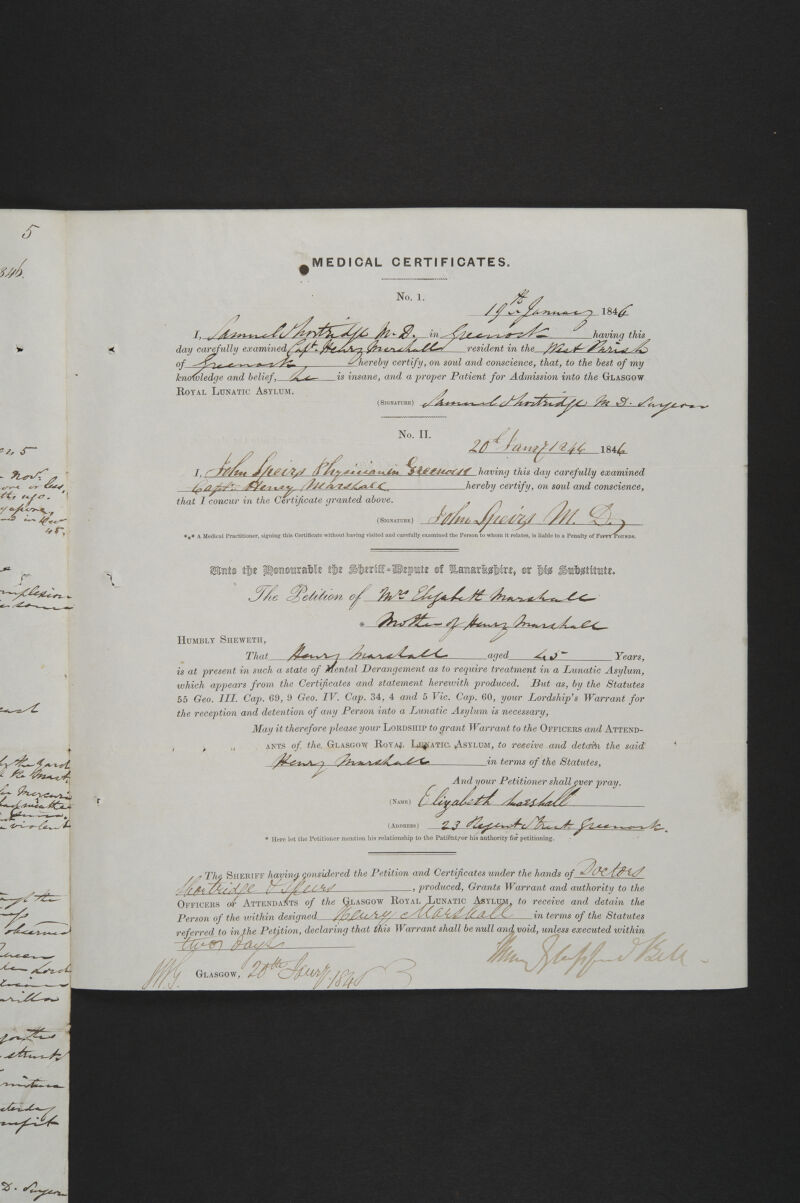 5
1846.
MEDICAL CERTIFICATES.
No. 1.
19th January 1846
I, Samuel Shortridge M.D. in Greenock having this
day carefully examined Capt. Henry Marshall resident in the West Parish
of Greenock hereby certify, on soul and conscience, that, to the best of my
knowledge and belief, he is insane, and a proper Patient for Admission into the GLASGOW
ROYAL LUNATIC ASYLUM.
(SIGNATURE) Samuel Shortridge M.D. Surgeon
No. II.
20th Jany 1846 1846
I, John Speirs Physician in Greenock having this day carefully examined
Capt. Henry Marshall hereby certify, on soul and conscience,
that I concur in the Certificate granted above.
(SIGNATURE) John Speirs M.D.
*** A Medical Practitioner, signing this Certificate without having visited and carefully examined the Person to whom it relates, is liable to a Penalty of FIFTY POUNDS.
Unto the Honourable the Sheriff-Depute of Lanarkshire, or his Substitute.
The Petition of Mrs Elizabeth Marshall
* Mother of Henry Marshall
HUMBLY SHEWETH,
That Henry Marshall aged 45 Years,
is at present in such a state of Mental Derangement as to require treatment in a Lunatic Asylum,
which appears from the Certificates and statement herewith produced. But as, by the Statutes
55 Geo. III. Cap. 69, 9 Geo. IV. Cap. 34, 4 and 5 Vic. Cap. 60, your Lordship's Warrant for
the reception and detention of any Person into a Lunatic Asylum is necessary,
May it therefore please your LORDSHIP to grant Warrant to the OFFICERS and ATTEND-
ANTS of the GLASGOW ROYAL LUNATIC ASYLUM, to receive and detain the said
Henry Marshall in terms of the Statutes,
And your Petitioner shall ever pray.
(NAME) Elizabeth Marshall
(ADDRESS) 23 Regent Street Greenock.
* Here let the Petitioner mention his relationship to the Patient, or his authority for petitioning.
The SHERIFF having considered the Petition and Certificates under the hands of Doctors
Shortridge & Speirs, produced, Grants Warrant and authority to the
OFFICERS or ATTENDANTS of the GLASGOW ROYAL LUNATIC ASYLUM, to receive and detain the
Person of the within designed Henry Marshall in terms of the Statutes
referred to in the Petition, declaring that this Warrant shall be null and void, unless executed within
two days
Henry Glassford Bell
GLASGOW, 20th Jany 1846